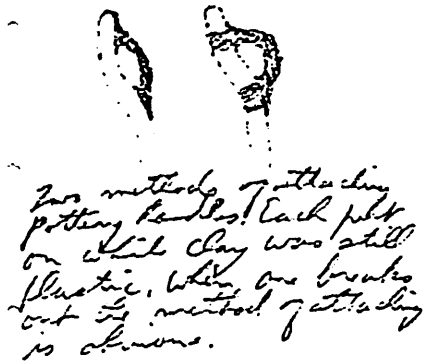 Two methods of attaching
pottery handles. Each put
on while clay was still
plastic. When one breaks
out the method of attaching
is obvious.